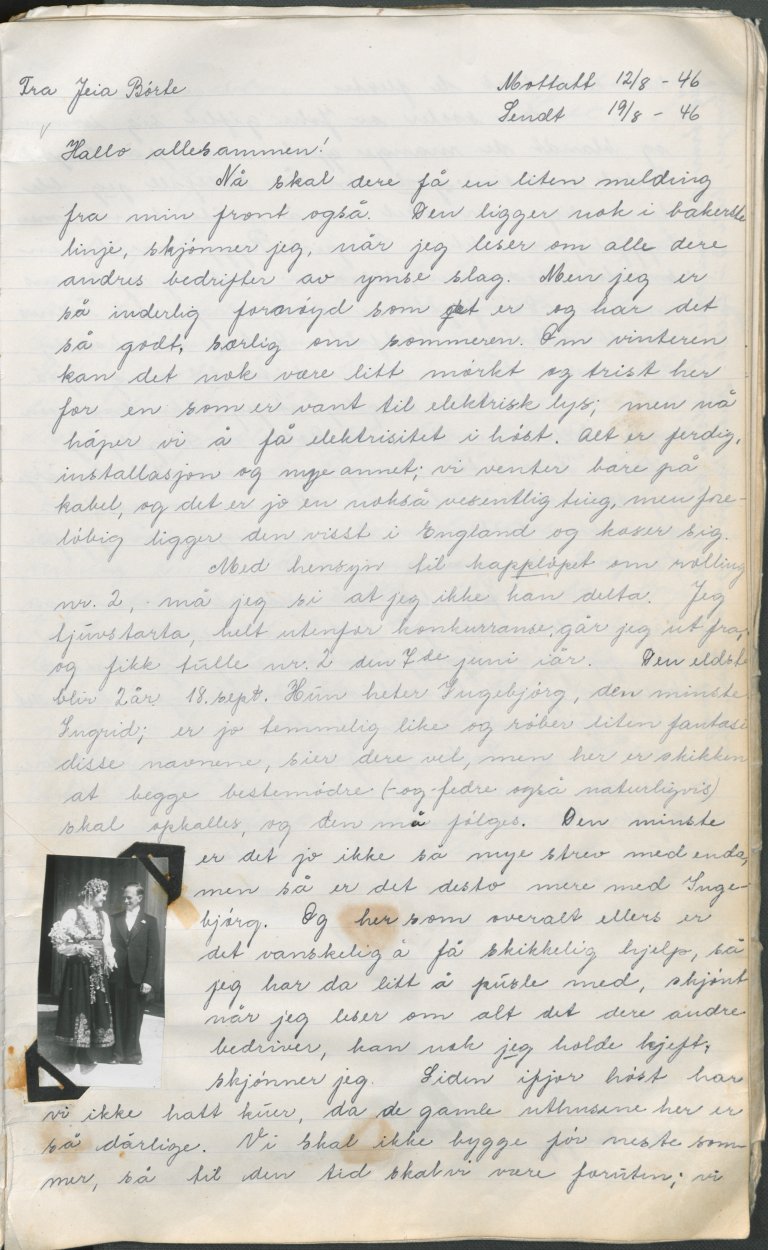 Fra Jeia Börte
Mottatt 12/8 - 46
Sendt 19/8 - 46
Hallo allesammen!
Nå skal dere få en liten melding
fra min front også. Den ligger nok i bakerste
linje, skjönner jeg, når jeg leser om alle dere
andres bedrifter av ymse slag. Men jeg er
så inderlig fornöyd som det er og har det
så godt, særlig om sommeren. Om vinteren
kan det nok være litt mörkt og trist her
for en som er vant til elektrisk lys; men nå
håper vi å få elektrisitet i höst. Alt er ferdig,
installasjon og mye annet; vi venter bare på
kabel, og det er jo en nokså vesentlig ting, men fore-
löbig ligger den visst i England og koser sig.
Med hensyn til kapplöpet om rolling
nr. 2, - må jeg si at jeg ikke kan delta. Jeg
tjuvstarta, helt utenfor konkurranse, går jeg ut fra,
og fikk tulle nr. 2 den 7de juni iår. Den eldste
blir 2 år 18. sept. Hun heter Ingebjörg, den minste
Ingrid; er jo temmelig like og röber liten fantasi
disse navnene, sier dere vel, men her er skikken
at begge bestemödre (-og-fedre også naturligvis)
skal opkalles, og den må fölges. Den minste
er det jo ikke så mye strev med enda,
men så er det desto mere med Inge-
björg. Og her som overalt ellers er
det vanskelig å få skikkelig hjelp, så
jeg har da litt å pusle med, skjönt
når jeg leser om alt det dere andre
bedriver, kan nok jeg holde kjeft,
skjönner jeg. Siden ifjor höst har
vi ikke hatt kuer, da de gamle uthusene her er
så dårlige. Vi skal ikke bygge för neste som-
mer, så til den tid skal vi være foruten; vi